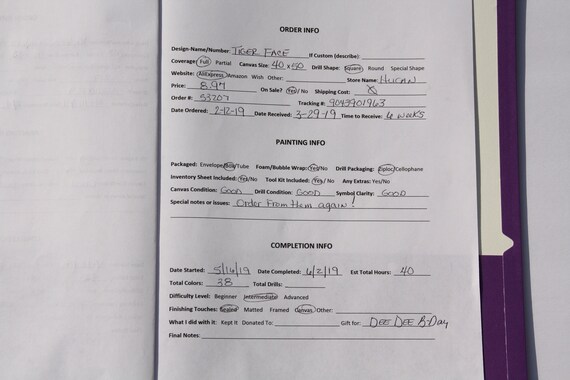 ORDER INFO
Design-Name/Number: TIGER FACE If Custom (describe):
Coverage: Full Partial Canvas Size: 40 x 50 Drill Shape: Square Round Special Shape
Website: AliExpress Amazon Wish Other: Store Name: HUCAN
Price: 8.97 On Sale? Yes/ No Shipping Cost:
Order #: 53207 Tracking #: 9043901963
Date Ordered: 2-12-19 Date Received: 3-29-19 Time to Receive: 6 weeks
PAINTING INFO
Packaged: Envelope/Box/Tube Foam/Bubble Wrap: Yes/No Drill Packaging: Ziploc/Cellophane
Inventory Sheet Included: Yes/No Tool Kit Included: Yes/ No Any Extras: Yes/No
Canvas Condition: GOOD Drill Condition: GOOD Symbol Clarity: GOOD
Special notes or issues: Order From them again!
COMPLETION INFO
Date Started: 5/16/19 Date Completed: 6/2/19 Est Total Hours: 40
Total Colors: 38 Total Drills:
Difficulty Level: Beginner Intermediate Advanced
Finishing Touches: Sealed Matted Framed Canvas Other:
What I did with it: Kept It Donated To: Gift for: DEE DEE B-Day
Final Notes: